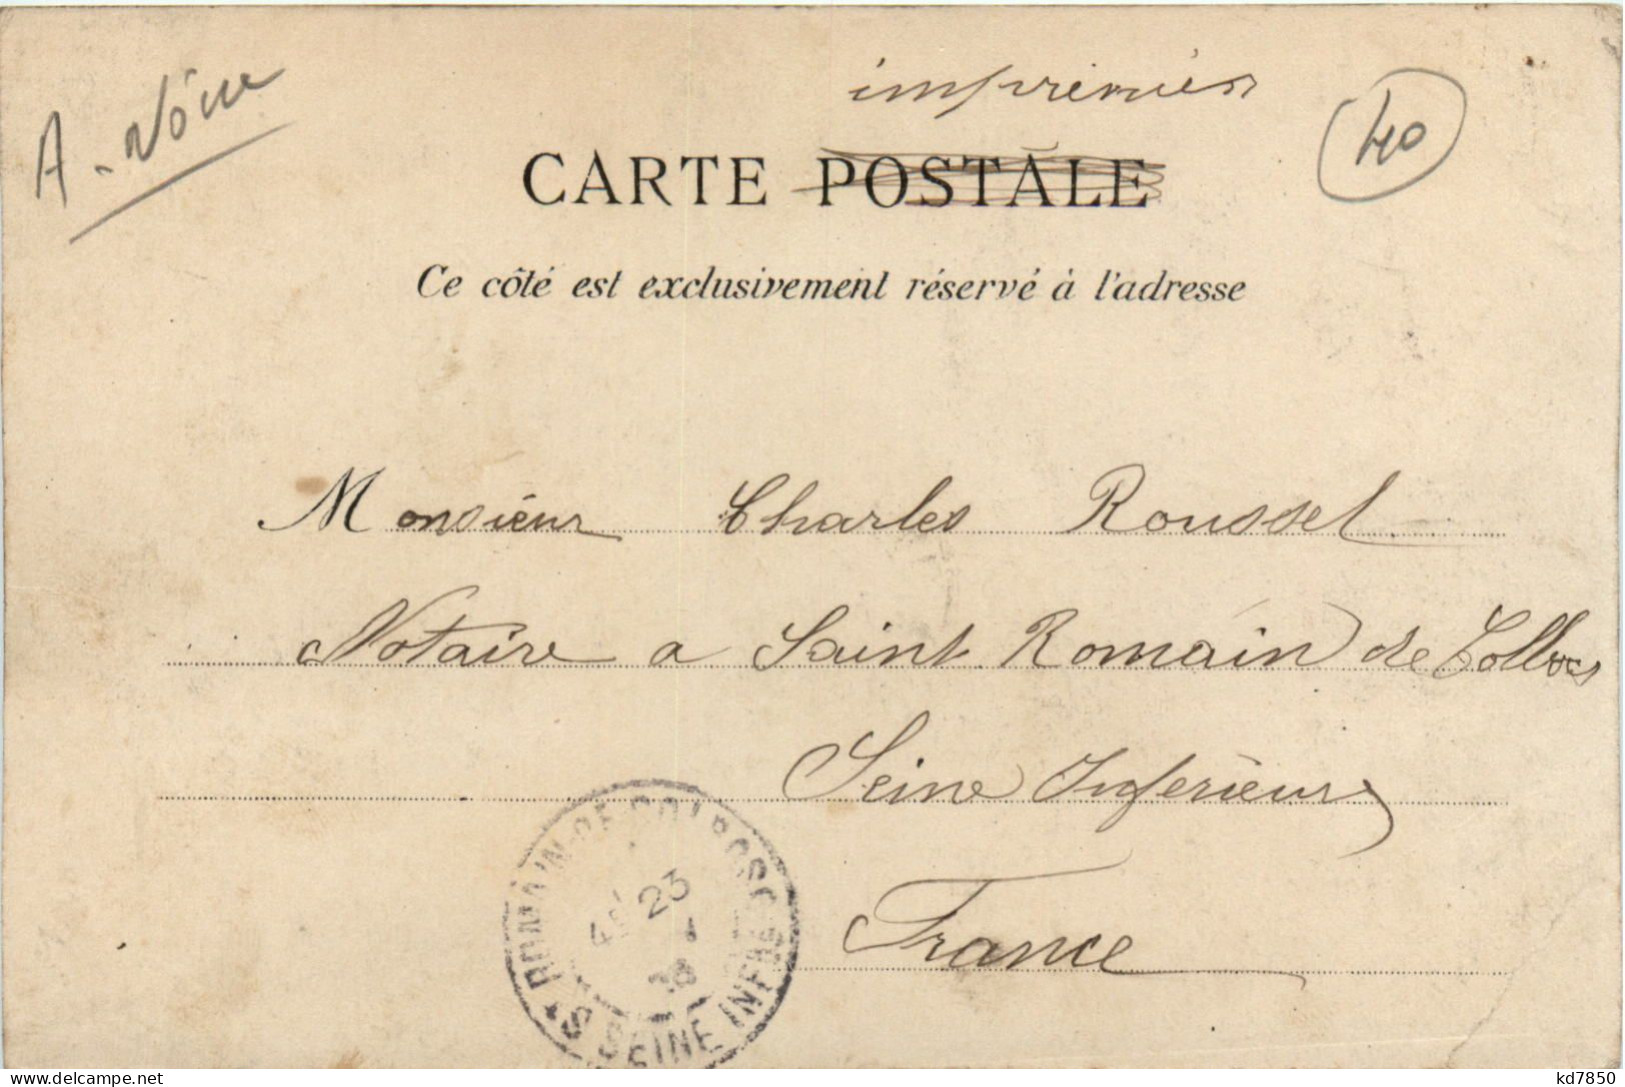 A. Noire
imprimés
40
CARTE POSTALE
Ce côté est exclusivement réservé à l'adresse
Monsieur Charles Roussel
Notaire a Saint Romain de Colbosc
Seine Inferieure
France
ST ROMAIN-DE-COLBOSC
23
SEINE INFRE
kd7850